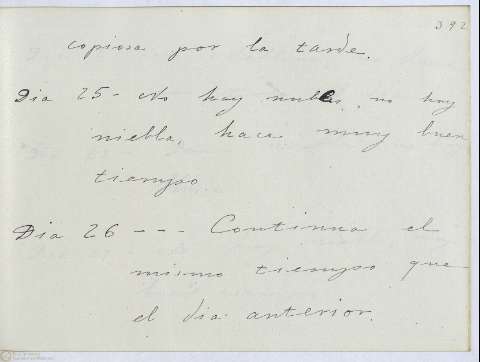 392
copiosa por la tarde.
Dia 25 - No hay nubes, no hay
niebla, hace muy buen
tiempo
Dia 26 - - - Continua el
mismo tiempo que
el dia anterior.